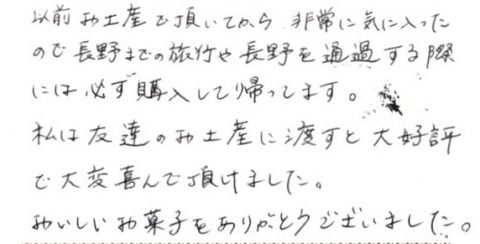 以前お土産で頂いてから非常に気に入った
ので長野までの旅行や長野を通過する際
には必ず購入して帰ってます。
私は友達のお土産に渡すと大好評
で大変喜んで頂けました。
おいしいお菓子をありがとうございました。